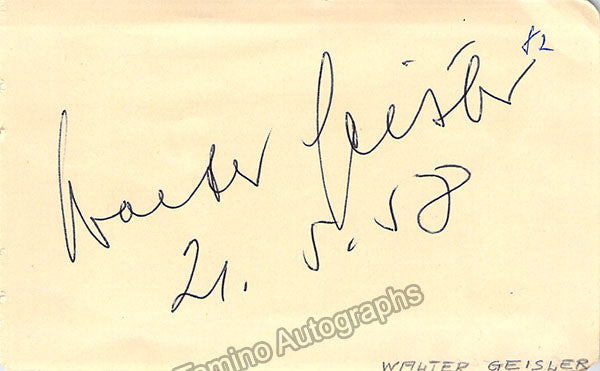 82
Walter Geisler
21. 5. 58
Tamino Autographs
WALTER GEISLER